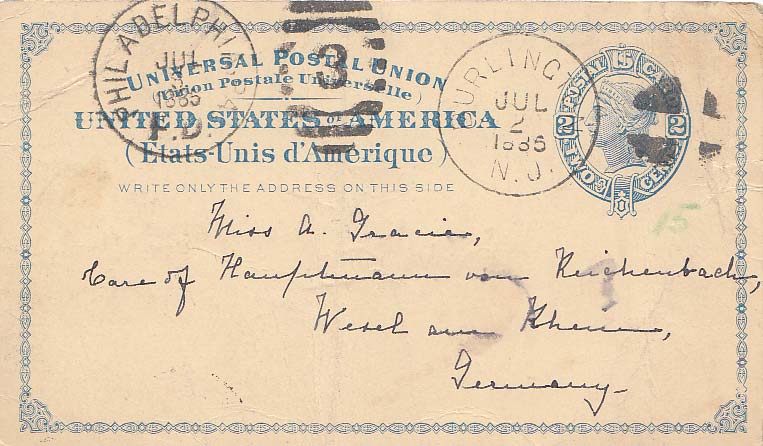 PHILADELPHIA
JUL
1885
P.D.
3
BURLINGTON
JUL
2
1885
N.J.
UNIVERSAL POSTAL UNION
(Union Postale Universelle)
UNITED STATES OF AMERICA
(États-Unis d'Amérique)
WRITE ONLY THE ADDRESS ON THIS SIDE
U S POSTAL CARD
2 2
TWO CENTS
15
Miss A. Gracie,
Care of Hauptmann von Reichenbach,
Wesel am Rhein,
Germany